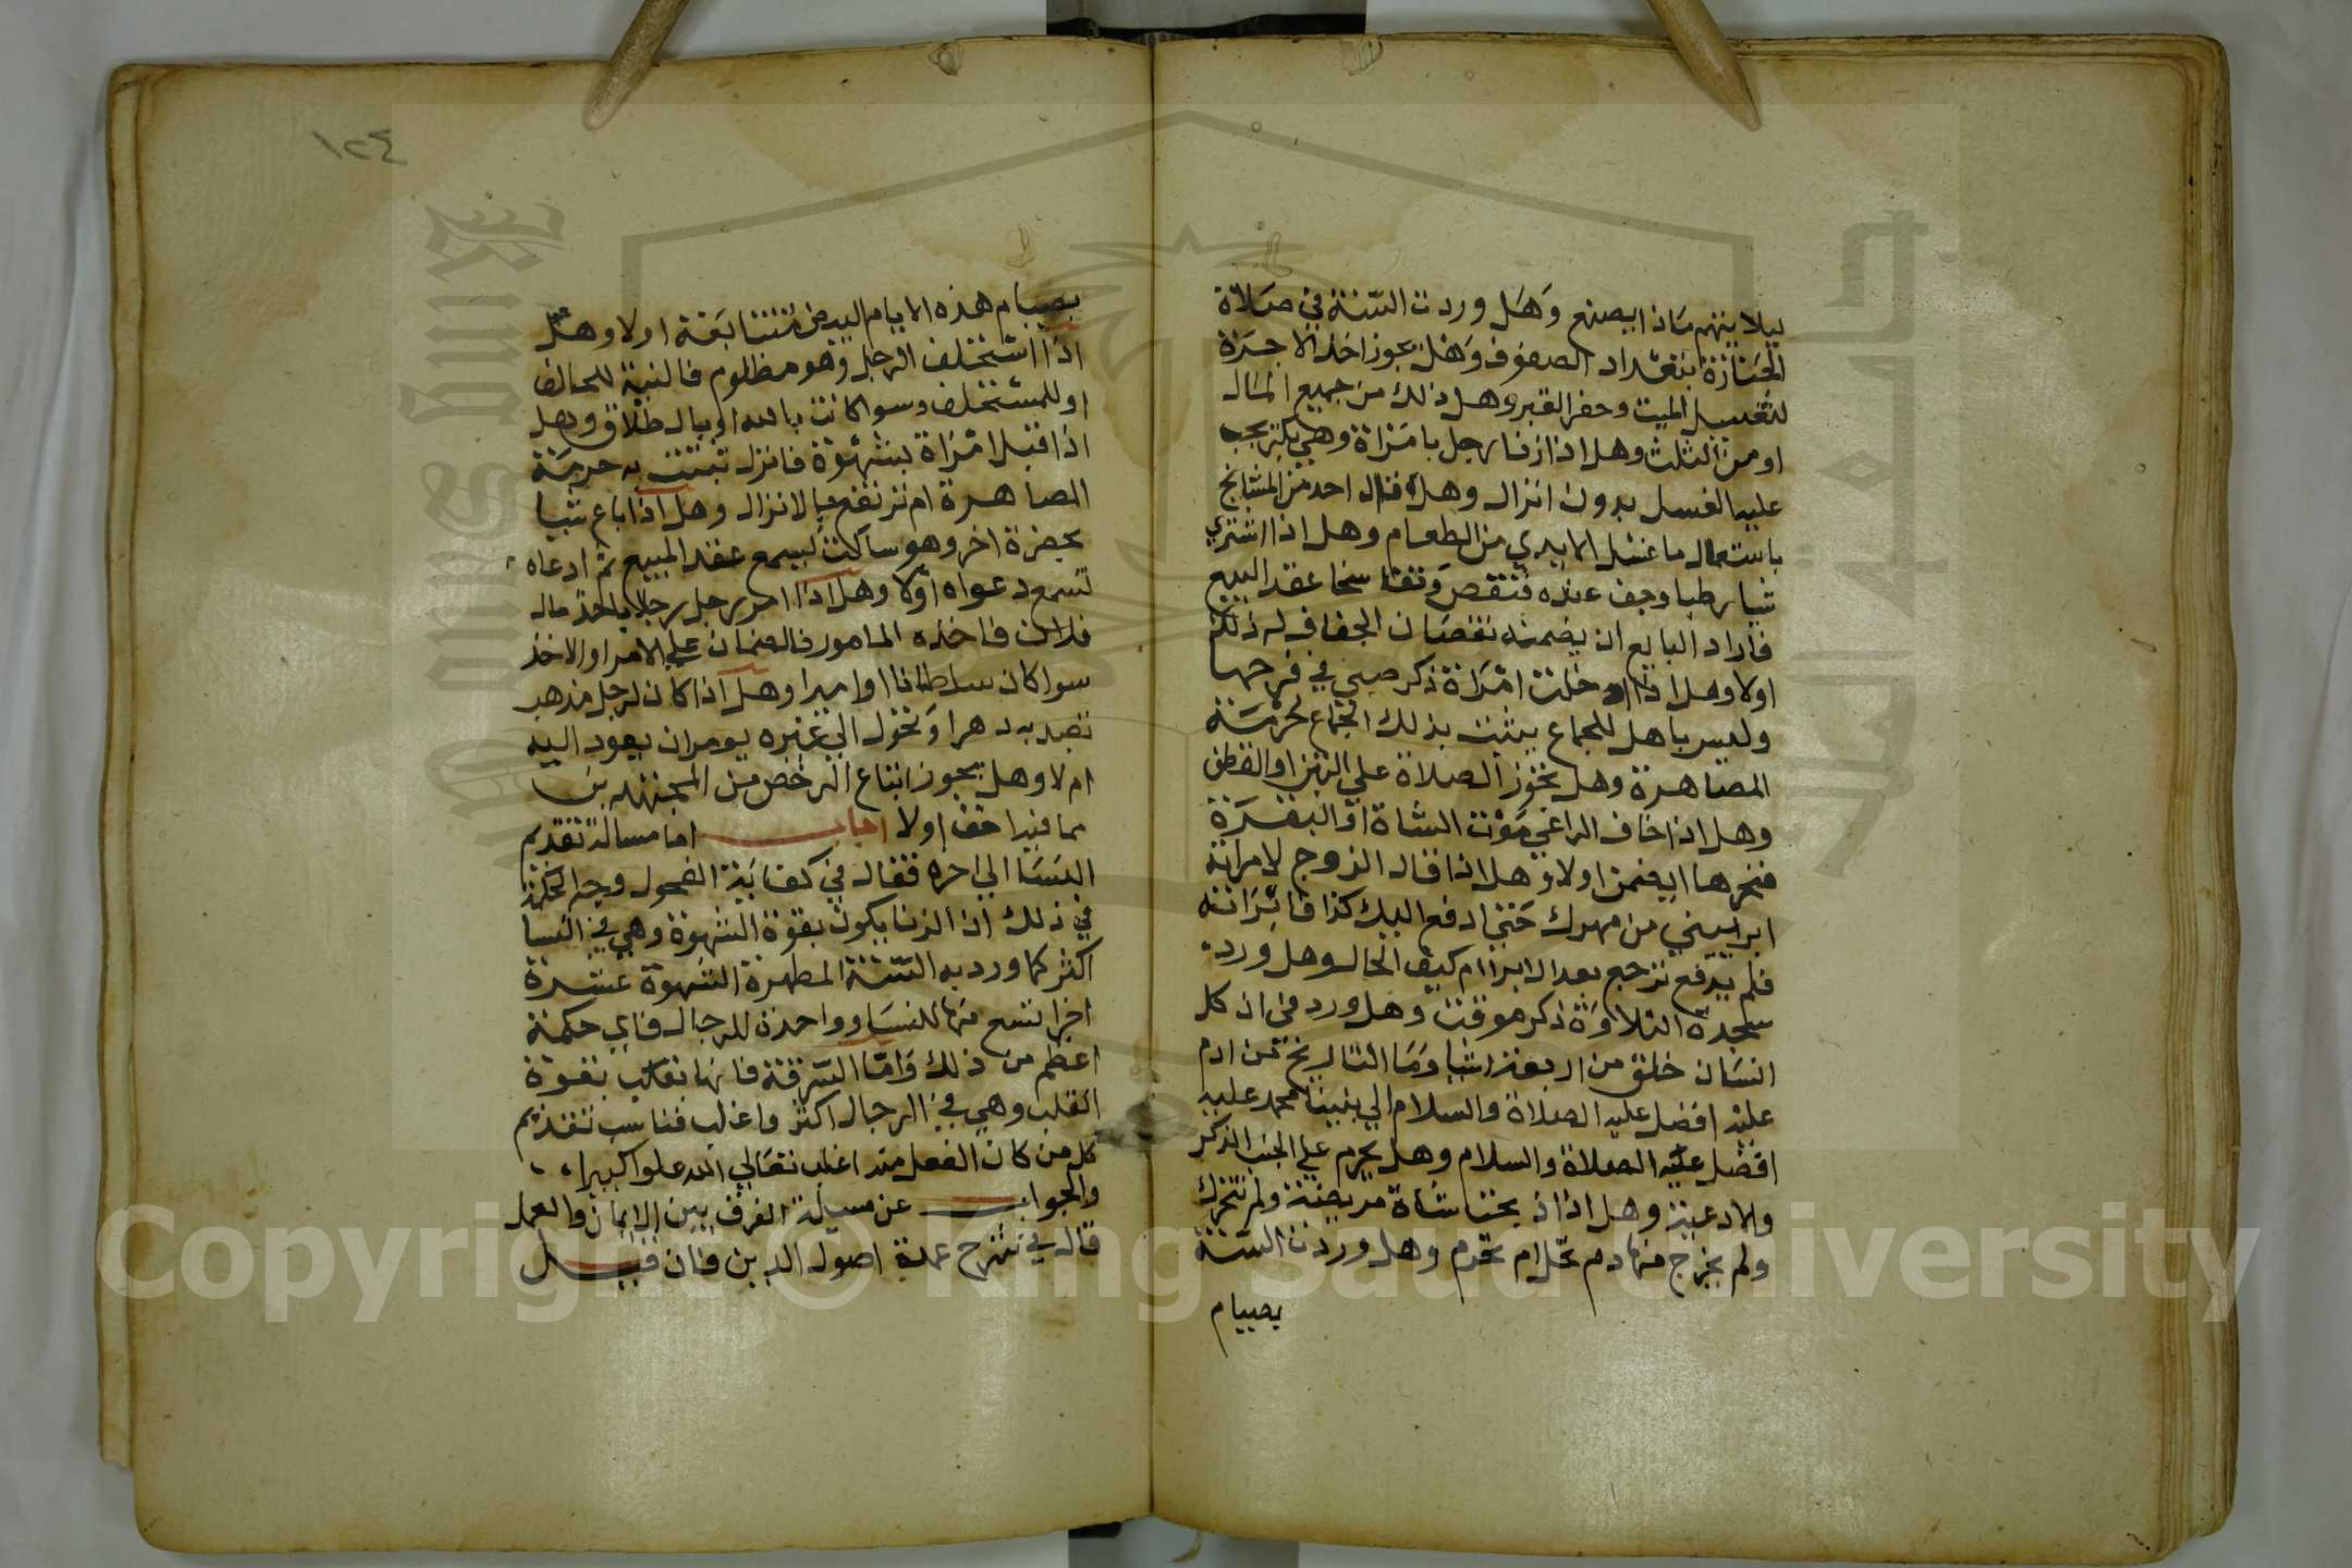 ليلا يتهم ماذا يصنع وهل وردت السنة في صلاة
الجنازة بتعداد الصفوف وهل يجوز اخذ الاجرة
لتغسيل الميت وحفر القبر وهل ذلك من جميع المال
او من الثلث وهل اذا زنا رجل بامراة وهي بكر يجب
عليه الغسل بدون انزال وهل قال احد من المشايخ
باستعمال ما غسل الايدي من الطعام وهل اذا اشتري
شيا رطبا وجف عنده فنقص وتفاسخا عقد البيع
فاراد البايع ان يضمنه نقصان الجفاف له ذلك
اولا وهل اذا ادخلت امراة ذكر صبي في فرجها
وليس باهل للجماع يثبت بذلك الجماع حرمة
المصاهرة وهل تجوز الصلاة علي التبن او القطن
وهل اذا خاف الراعي موت الشاة او البقرة
فنحرها ايضمن اولا وهل اذا قال الزوج لامراته
ابرايني من مهرك حتي ادفع اليك كذا فابراته
فلم يدفع ترجع بعد الابرا ام كيف الحال وهل ورد
سجدة التلاوة ذكر موقت وهل ورد في ان كل
انسان خلق من اربعة اشيا وما التاريخ من ادم
عليه افضل الصلاة والسلام الي نبينا محمد عليه
افضل الصلاة والسلام وهل يحرم علي الجنب الذكر
ولادعية وهل اذا ذبحت شاة مريضة ولم تتحرك
ولم يخرج منها دم تحل ام تحرم وهل وردت السنة
بصيام
١٢٤
بصيام هذه الايام البيض متتابعة اولا وهل
اذا استحلف الرجل وهو مظلوم فالنية للحالف
او للمستحلف وسوا كانت بالله او بالطلاق وهل
اذا قبل امراة بشهوة فانزل تثبت به حرمة
المصاهرة ام ترتفع بالانزال وهل اذا باع شيا
بحضرة اخر وهو ساكت يسمع عقد المبيع ثم ادعاه
تسمع دعواه اولا وهل اذا امر رجل رجلا ياخذ مال
فلان فاخذه المامور فالضمان علي الامر او الاخذ
سوا كان سلطانا او اميرا وهل اذا كان لرجل مذهب
تعبد به دهرا وتحول الي غيره يومر ان يعود اليه
ام لا وهل يجوز اتباع الرخص من المجتهدين
مما فيه اخف اولا اجاب اما مسالة تقديم
النسا الي اخره فقال في كفاية الفحول وجه الحكمة
في ذلك ان الزنا يكون بقوة الشهوة وهي في النسا
اكثر كما ورد به السنة المطهرة الشهوة عشرة
اجزا تسع منها للنسا وواحدة للرجال فاي حكمة
اعظم من ذلك واما السرقة فانها تغلب بقوة
القلب وهي في الرجال اكثر واغلب فناسب تقديم
كل من كان الفعل منه اغلب تعالي الله علوا كبيرا
والجواب عن مسيلة الفرق بين الايمان والعمل
قال في شرح عمدة اصول الدين فان قيل
Copyright © King Saud University